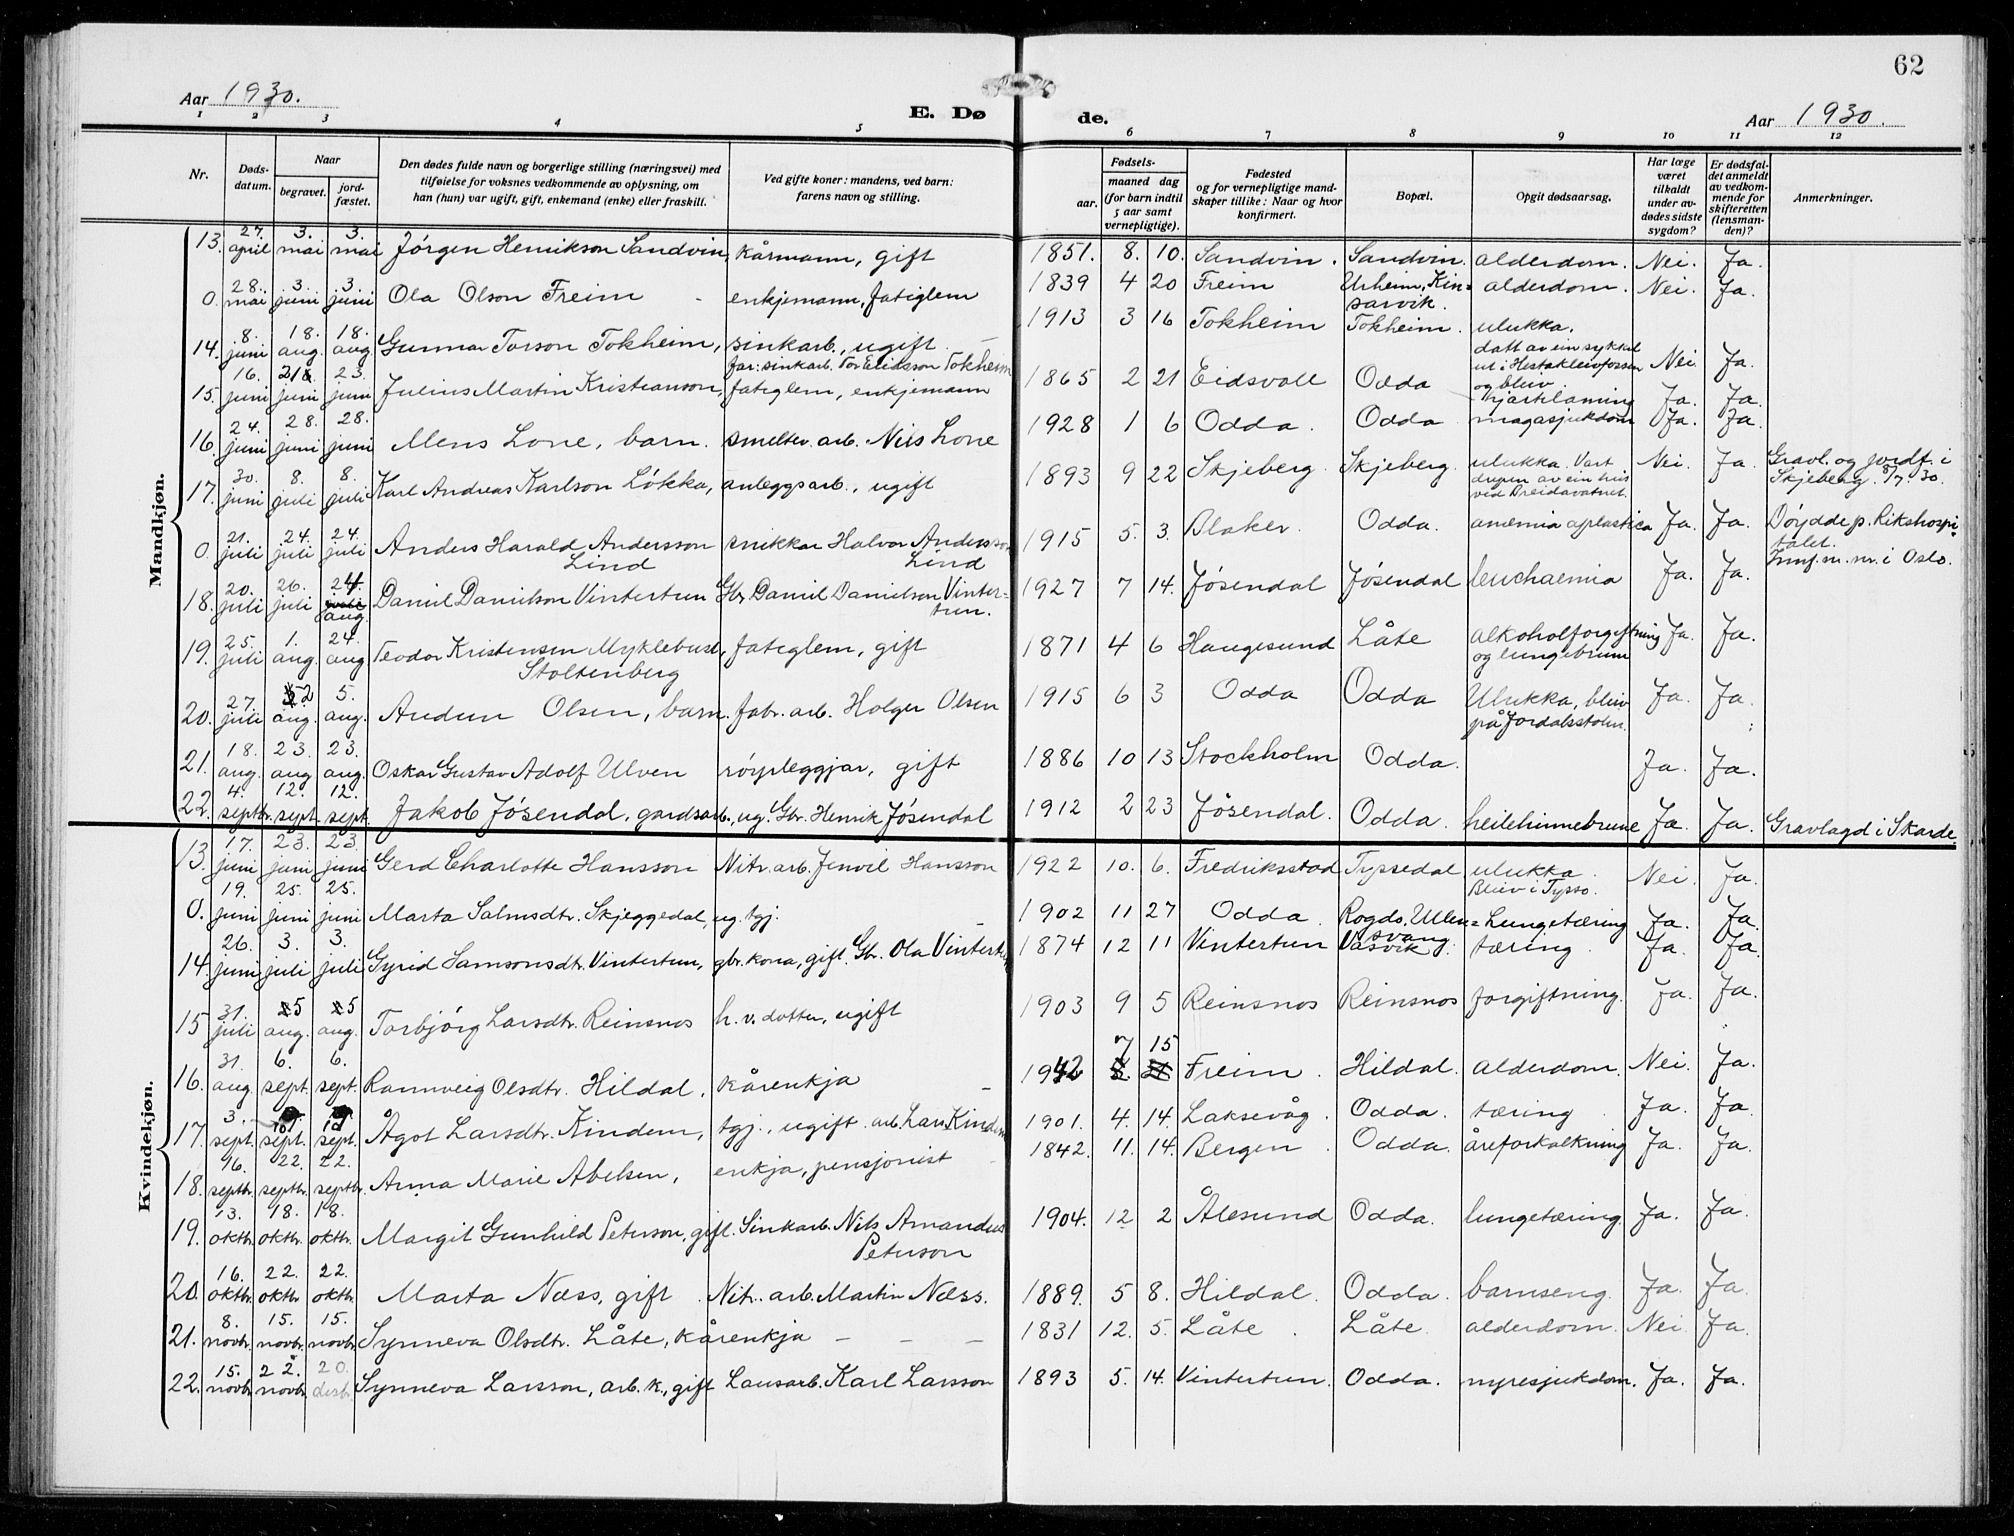 62
Aar 1930.
E. Døde.
Aar 1930.
1 2 3 4 5 6 7 8 9 10 11 12
Nr.
Døds-datum.
Naar
begravet.
jord-fæstet.
Den dødes fulde navn og borgerlige stilling (næringsvei) med tilføielse for voksnes vedkommende av oplysning, om han (hun) var ugift, gift, enkemand (enke) eller fraskilt.
Ved gifte koner: mandens, ved barn: farens navn og stilling.
Fødsels-
aar.
maaned dag
(for barn indtil 5 aar samt vernepligtige).
Fødested og for vernepligtige mandskaper tillike: Naar og hvor konfirmert.
Bopæl.
Opgit dødsaarsag.
Har læge været tilkaldt under avdødes sidste sygdom?
Er dødsfaldet anmeldt av vedkommende for skifteretten (lensmanden)?
Anmerkninger.
Mandkjøn.
13. 27. april 3. mai 3. mai Jørgen Henrikson Sandvin, kårmann, gift 1851. 8. 10. Sandvin. Sandvin. alderdom. Nei. Ja.
0. 28. mai 3. juni 3. juni Ola Olson Freim - enkjemann, fatiglem 1839 4 20 Freim Urheim, Kinsarvik. alderdom. Nei. Ja.
14. 8. juni 18. aug. 18. aug. Gunnar Torson Tokheim, sinkarb., ugift. far: sinkarb. Tor Eiridsson Tokheim 1913 3 16 Tokheim Tokheim. ulukka. datt av ein sykkel ut i Hestakleivfossen og bleiv. Nei. Ja.
15. 16. juni 21. juni 23. juni Julius Martin Kristianson, fatiglem, enkjemann 1865 2 21 Eidsvoll Odda hjartelaming Ja. Ja.
16. 24. juni 28. juni 28. juni Mens Lone, barn. smeltev. arb. Nils Lone 1928 1 6 Odda. Odda magasjukdom Ja. Ja.
17. 30. juni 8. juli 8. juli Karl Andreas Karlson Løkka, anleggsarb., ugift 1893 9 22 Skjeberg. Skjeberg. ulukka. Vart drepen av ein hus ved Breidavatnet. Nei. Ja. Gravl. og jordf. i Skjeberg. 8/7. 30.
0. 21. juli 24. juli 24. juli Anders Harald Andersson Lind snikkar Halvor Andersson Lind 1915 5. 3. Blaker. Odda. anæmia aplastica Ja. Ja. Døydde p. Rikshospitalet. Innf. m. nr. i Oslo.
18. 20. juli 26. juli 24. aug. Daniel Danielson Vintertun Gbr. Daniel Danielson Vintertun. 1927 7 14. Jøsendal Jøsendal leuchaemia Ja. Ja.
19. 25. juli 1. aug. 24. aug Teodor Kristensen Myklebust, Stoltenberg fatiglem, gift 1871 4 6 Haugesund Låte alkoholforgiftning og lungebrune Ja. Ja.
20. 27. juli 2 aug. 5. aug. Audun Olsen, barn. fabr. arb. Holger Olsen 1915 6 3 Odda Odda Ulukka, bleiv på Jordalsstolen. Ja. Ja.
21. 18. aug. 23. aug 23. aug. Oskar Gustav Adolf Ulven røyrleggjar, gift 1886 10 13 Stockholm Odda. Ja. Ja.
22. 4. septbr. 12. sept. 12. sept. Jakob Jøsendal, gardsarb., ug. Gbr. Henrik Jøsendal 1912 2 23 Jøsendal. Odda. heilehinnebrune Ja. Ja. Gravlagd i Skarde.
Kvindekjøn.
13. 17. juni 23. juni 23. juni Gerd Charlotte Hansson Nitr. arb. Hansson 1922 10. 6. Fredriksstad Tyssedal ulukka. Bleiv i Tysso. Nei. Ja.
0. 19. juni 25. juni 25. juni Marta Salmsdtr. Skjeggedal, ug. tgj. - 1902 11 27 Odda. Rogdo, Ullensvang Lungetæring Ja. Ja.
14. 26. juni 3. juli 3. juli Gyrid Samsonsdtr. Vintertun, gbr. kona, gift. Gbr. Ola Vintertun 1874 12 11 Vintertun Vasvik. tæring. Ja. Ja.
15 31. juli 5 aug. 5 aug. Torbjørg Larsdtr. Reinsnos h. v. dotter, ugift 1903 9 5 Reinsnos Reinsnos forgiftning. Ja. Ja.
16. 31. aug 6. sept. 6. sept. Rannveig Olsdtr. Hildal, kårenkja - 1942 7 15 Freim. Hildal. alderdom. Nei. Ja.
17. 3. sept. sept. sept. Ågot Larsdtr. Kindem, tgj., ugift. arb. Lars Kindem 1901. 4. 14. Laksevåg. Odda. tæring Ja. Ja.
18. 16. septbr. 22. septbr. 22. septbr. Anna Marie Abelsen, enkja, pensjonist - 1842. 11. 14. Bergen. Odda. åreforkalkning Ja. Ja.
19. 13. oktbr. 18. oktbr. 18. oktbr. Margit Gunhild Peterson, gift. Sinkarb. Nils Amandus Peterson 1904. 12 2 Ålesund Odda. lungetæring. Ja. Ja.
20. 16. oktbr. 22. oktbr 22. oktbr. Marta Næss, gift. Nitr. arb. Martin Næss. 1889. 5 8. Hildal. Odda. barnseng. Ja. Ja.
21. 8. novbr. 15. novbr. 15. novbr. Synneva Olsdtr. Låte, kårenkja - - - 1831 12. 5. Låte. Låte. alderdom. Nei. Ja.
22. 15. novbr. 22. novbr. 20. desbr. Synneva Larsson, arb. k., gift Lausarb. Karl Larsson 1893 5. 14. Vintertun. Odda. nyresjukdom. Ja. Ja.